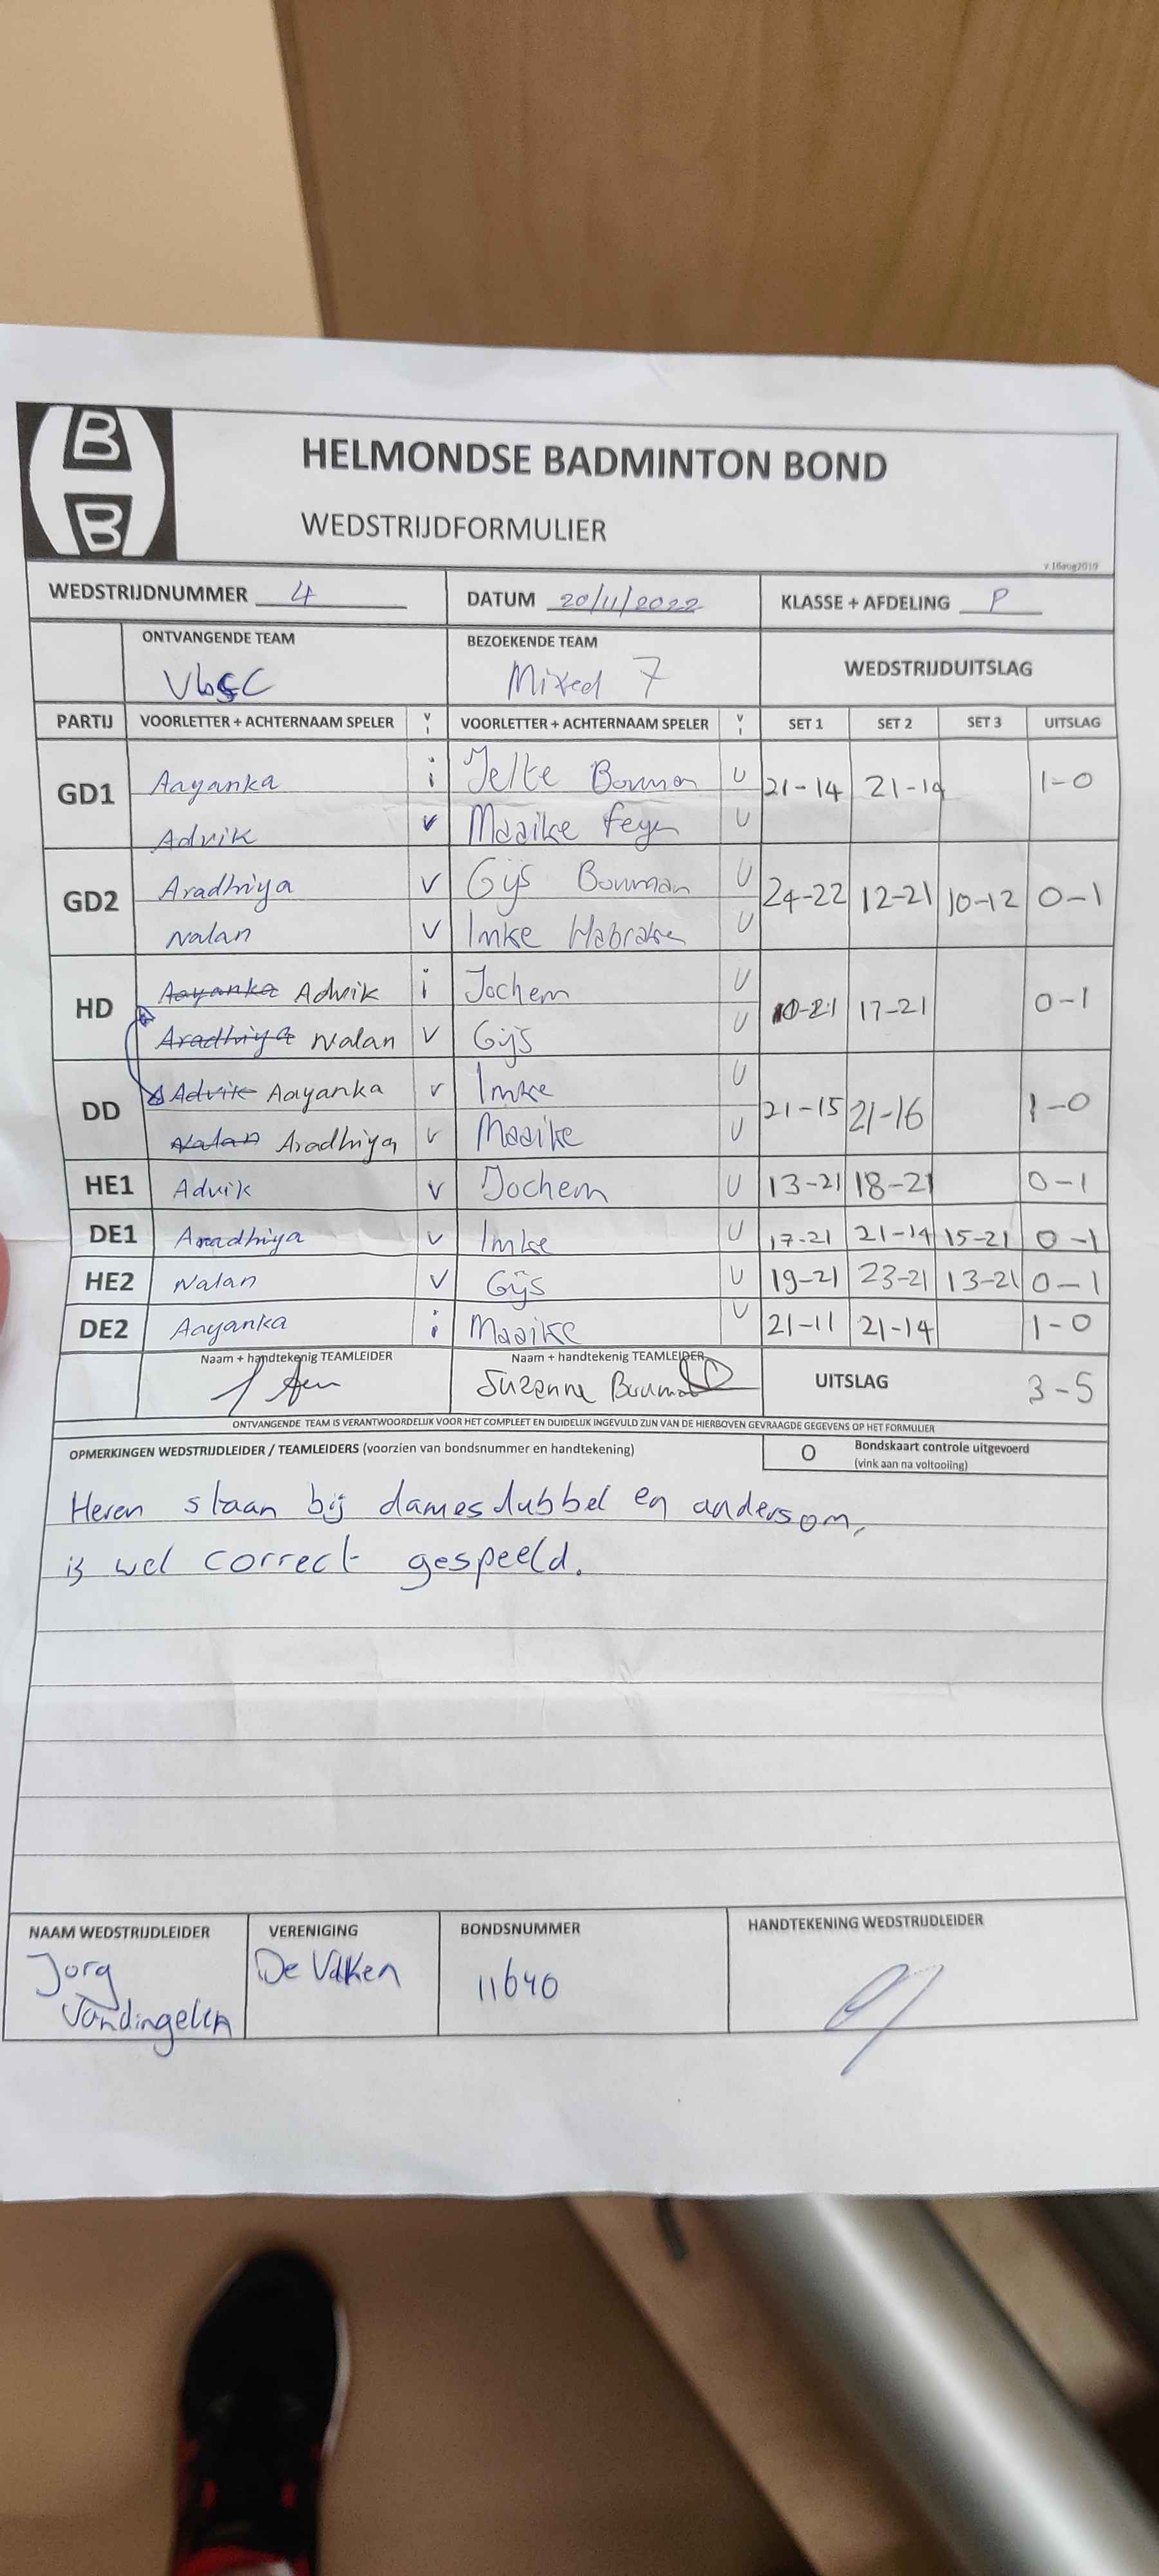 B
B
HELMONDSE BADMINTON BOND
WEDSTRIJDFORMULIER
v.16aug2019
WEDSTRIJDNUMMER 4 DATUM 20/11/2022 KLASSE + AFDELING P
ONTVANGENDE TEAM BEZOEKENDE TEAM WEDSTRIJDUITSLAG
VbSC Mixed 7
PARTIJ VOORLETTER + ACHTERNAAM SPELER V I VOORLETTER + ACHTERNAAM SPELER V I SET 1 SET 2 SET 3 UITSLAG
GD1 Aayanka i Jelte Bouman U 21-14 21-19 1-0
Advik v Maaike Feyen U
GD2 Aradhiya V Gijs Bouman U 24-22 12-21 10-12 0-1
Nalan V Imke Habraken U
HD Aayanka Advik i Jochem U 10-21 17-21 0-1
Aradhiya Nalan V Gijs U
DD Advik Aayanka v Imke U 21-15 21-16 1-0
Nalan Aradhiya v Maaike U
HE1 Advik V Jochem U 13-21 18-21 0-1
DE1 Aradhiya v Imke U 17-21 21-14 15-21 0-1
HE2 Nalan V Gijs U 19-21 23-21 13-21 0-1
DE2 Aayanka i Maaike U 21-11 21-14 1-0
Naam + handtekenig TEAMLEIDER Naam + handtekenig TEAMLEIDER UITSLAG 3-5
Suzanne Bouman
ONTVANGENDE TEAM IS VERANTWOORDELIJK VOOR HET COMPLEET EN DUIDELIJK INGEVULD ZIJN VAN DE HIERBOVEN GEVRAAGDE GEGEVENS OP HET FORMULIER
OPMERKINGEN WEDSTRIJDLEIDER / TEAMLEIDERS (voorzien van bondsnummer en handtekening) O Bondskaart controle uitgevoerd
(vink aan na voltooling)
Heren staan bij damesdubbel en andersom,
is wel correct gespeeld.
NAAM WEDSTRIJDLEIDER VERENIGING BONDSNUMMER HANDTEKENING WEDSTRIJDLEIDER
Jorg De Valken 11640
Vandingelen